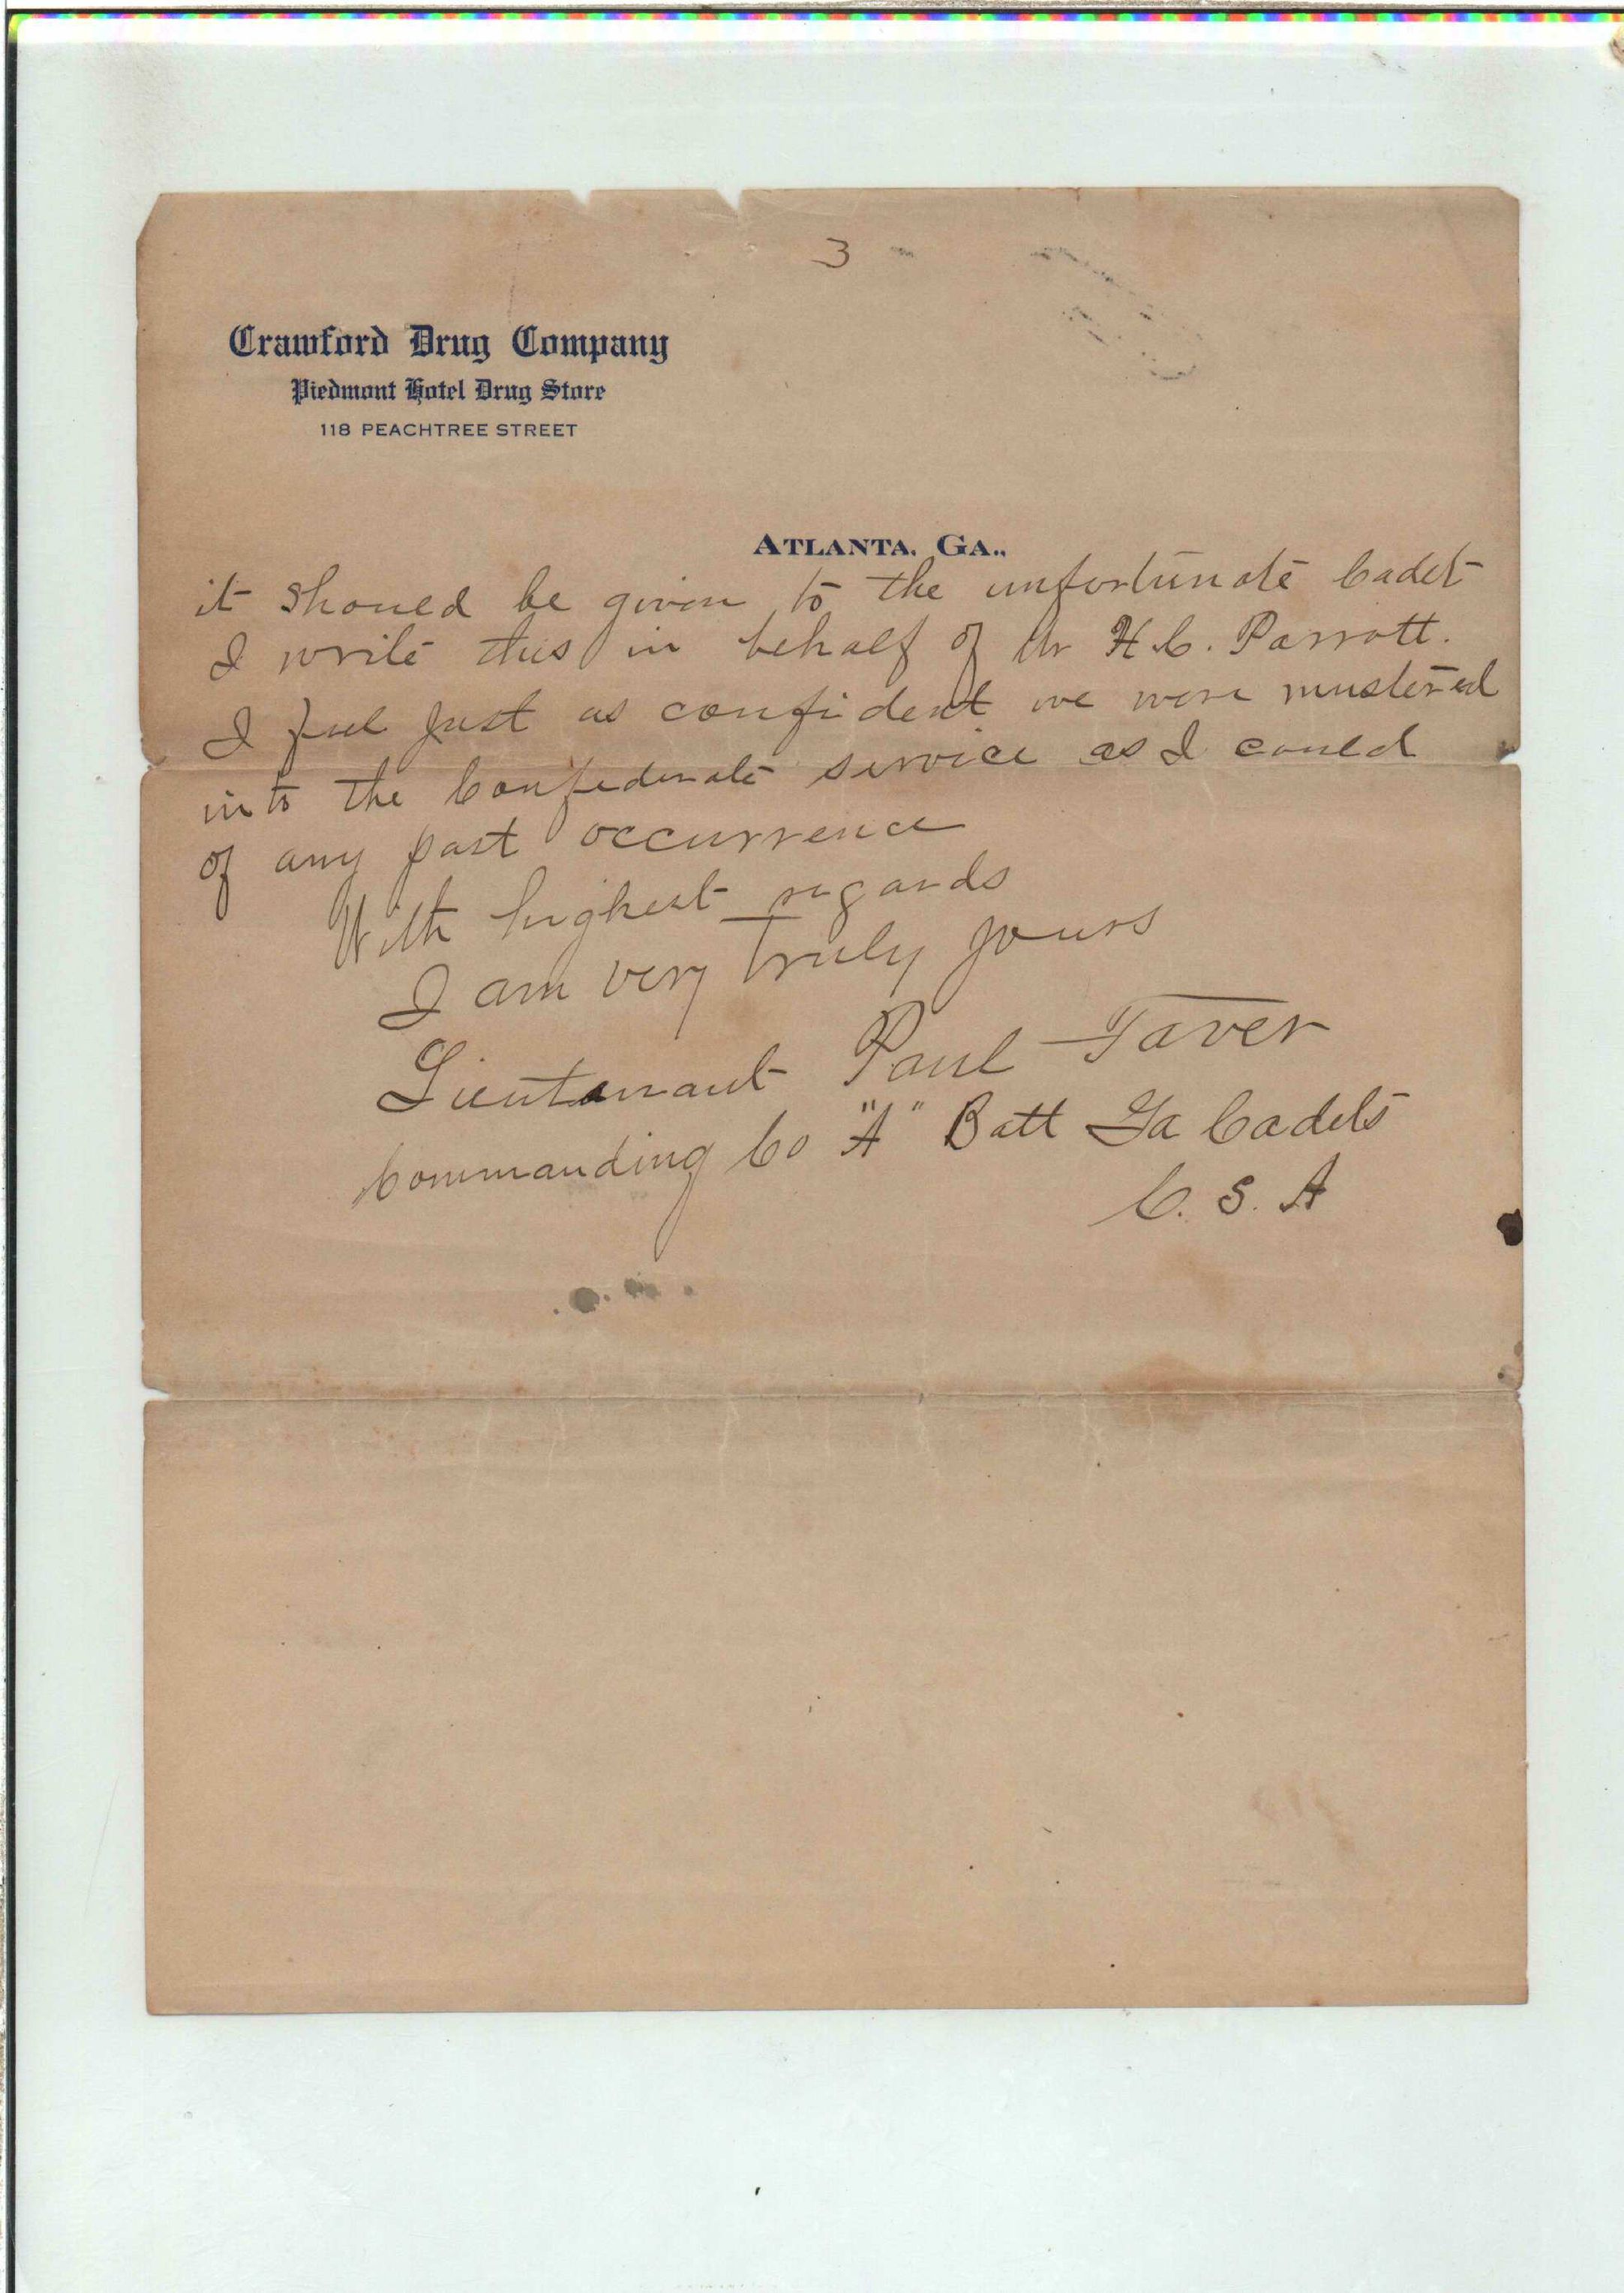 3
Crawford Drug Company
Piedmont Hotel Drug Store
118 PEACHTREE STREET
ATLANTA, GA.,
it should be given to the unfortunate Cadet
I write this in behalf of Mr H. C. Parrott.
I feel just as confident we were mustered
into the Confederate service as I could
of any past occurrence
With highest regards
I am very truly yours
Lieutenant Paul Faver
Commanding Co "A" Batt Ga Cadets
C. S. A